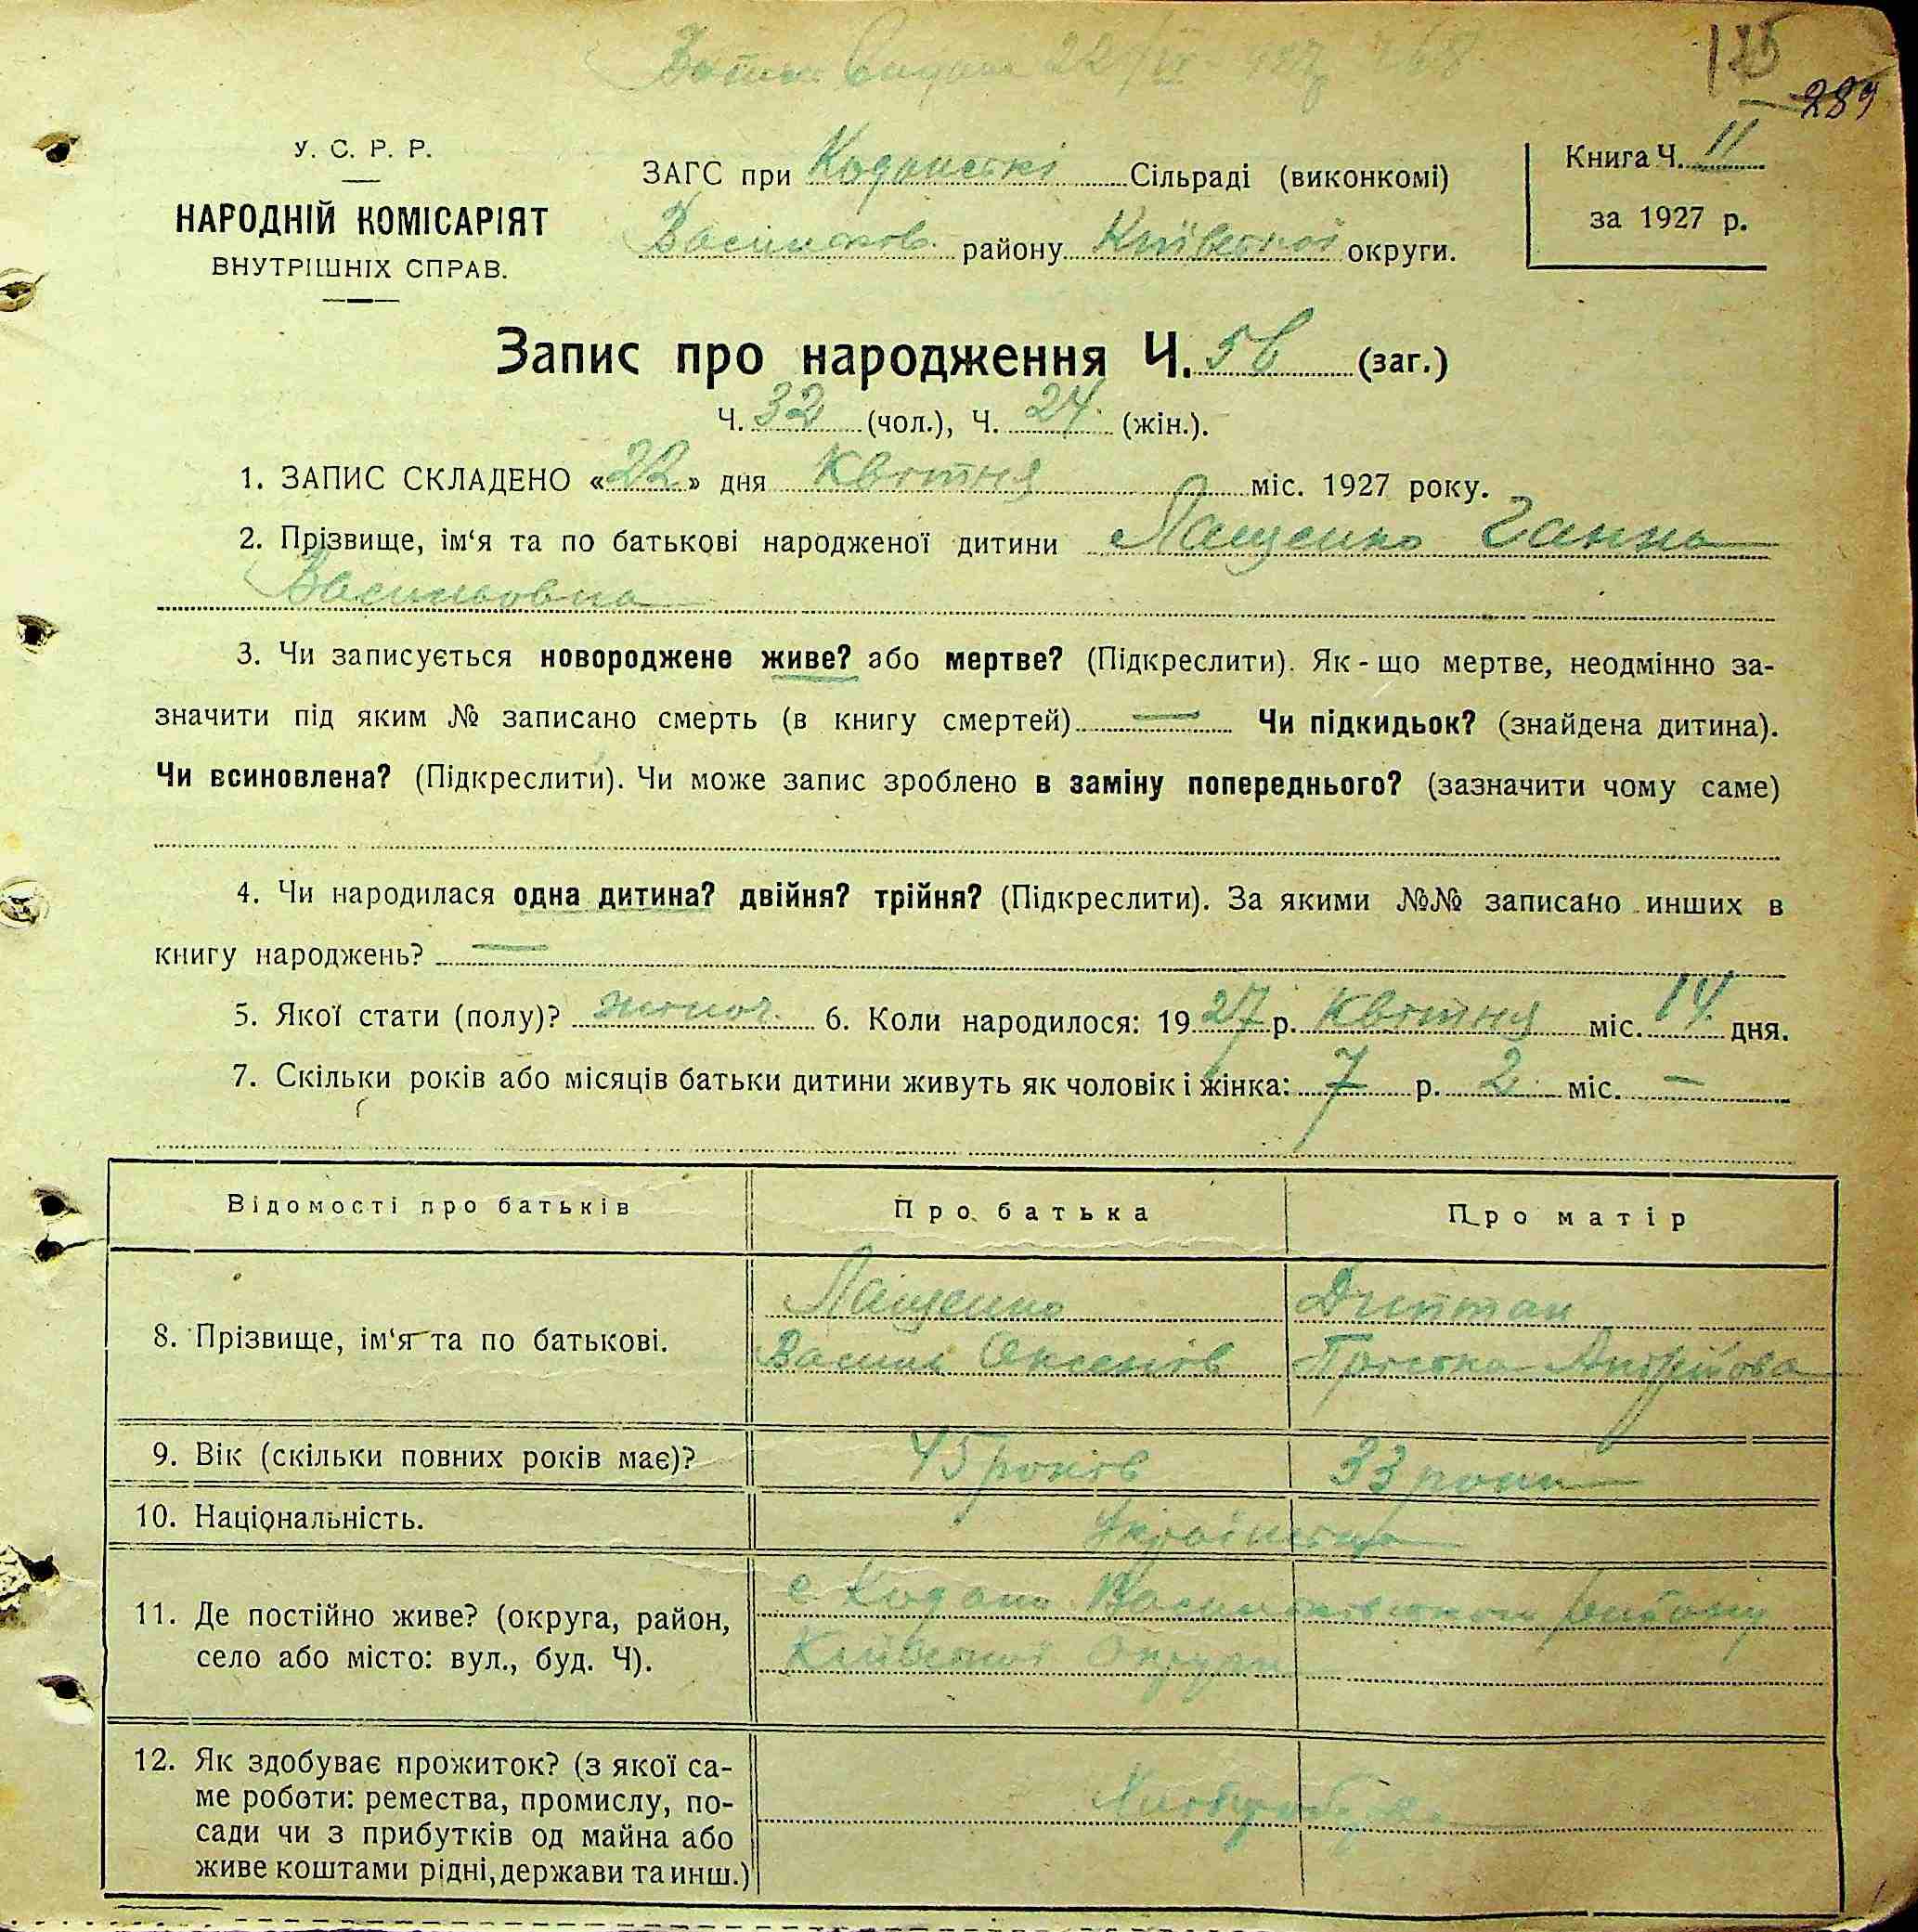 Витяг видано 22/IV 1927
125
289
У. С. Р. Р.
НАРОДНІЙ КОМІСАРІЯТ
ВНУТРІШНІХ СПРАВ.
ЗАГС при Коданській Сільраді (виконкомі)
Васильков. району Київської округи.
Книга Ч. II
за 1927 р.
Запис про народження Ч. 56 (заг.)
Ч. 32 (чол.), Ч. 24 (жін.).
1. ЗАПИС СКЛАДЕНО «22» дня Квітня міс. 1927 року.
2. Прізвище, ім‘я та по батькові народженої дитини Лащенко Ганна
Васильовна
3. Чи записується новороджене живе? або мертве? (Підкреслити). Як-що мертве, неодмінно за-
значити під яким № записано смерть (в книгу смертей) — Чи підкидьок? (знайдена дитина).
Чи всиновлена? (Підкреслити). Чи може запис зроблено в заміну попереднього? (зазначити чому саме)
4. Чи народилася одна дитина? двійня? трійня? (Підкреслити). За якими №№ записано инших в
книгу народжень? —
5. Якої стати (полу)? жіноч. 6. Коли народилося: 1927 р. Квітня міс. 14 дня.
7. Скільки років або місяців батьки дитини живуть як чоловік і жінка: 7 р. 2 міс. —
Відомості про батьків Про батька Про матір
8. Прізвище, ім‘я та по батькові.
Лащенко
Василь Оксентів
Андрійова
9. Вік (скільки повних років має)? 45 років 33 роки
10. Національність. Українська
11. Де постійно живе? (округа, район,
село або місто: вул., буд. Ч).
с Кодаки Васильківського району
Київської Округи
12. Як здобуває прожиток? (з якої са-
ме роботи: ремества, промислу, по-
сади чи з прибутків од майна або
живе коштами рідні, держави та инш.)
Хліборобство